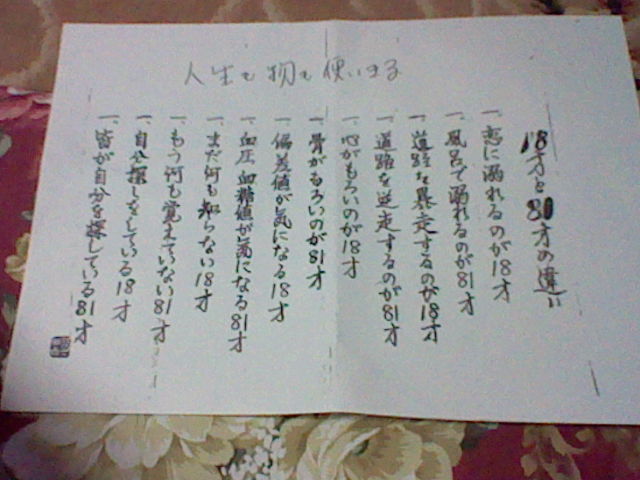 人生も物も使いきる
18才と81才の違い
一、恋に溺れるのが18才
一、風呂で溺れるのが81才
一、道路を暴走するのが18才
一、道路を逆走するのが81才
一、心がもろいのが18才
一、骨がもろいのが81才
一、偏差値が気になる18才
一、血圧、血糖値が気になる81才
一、まだ何も知らない18才
一、もう何も覚えていない81才
一、自分探しをしている18才
一、皆が自分を探している81才